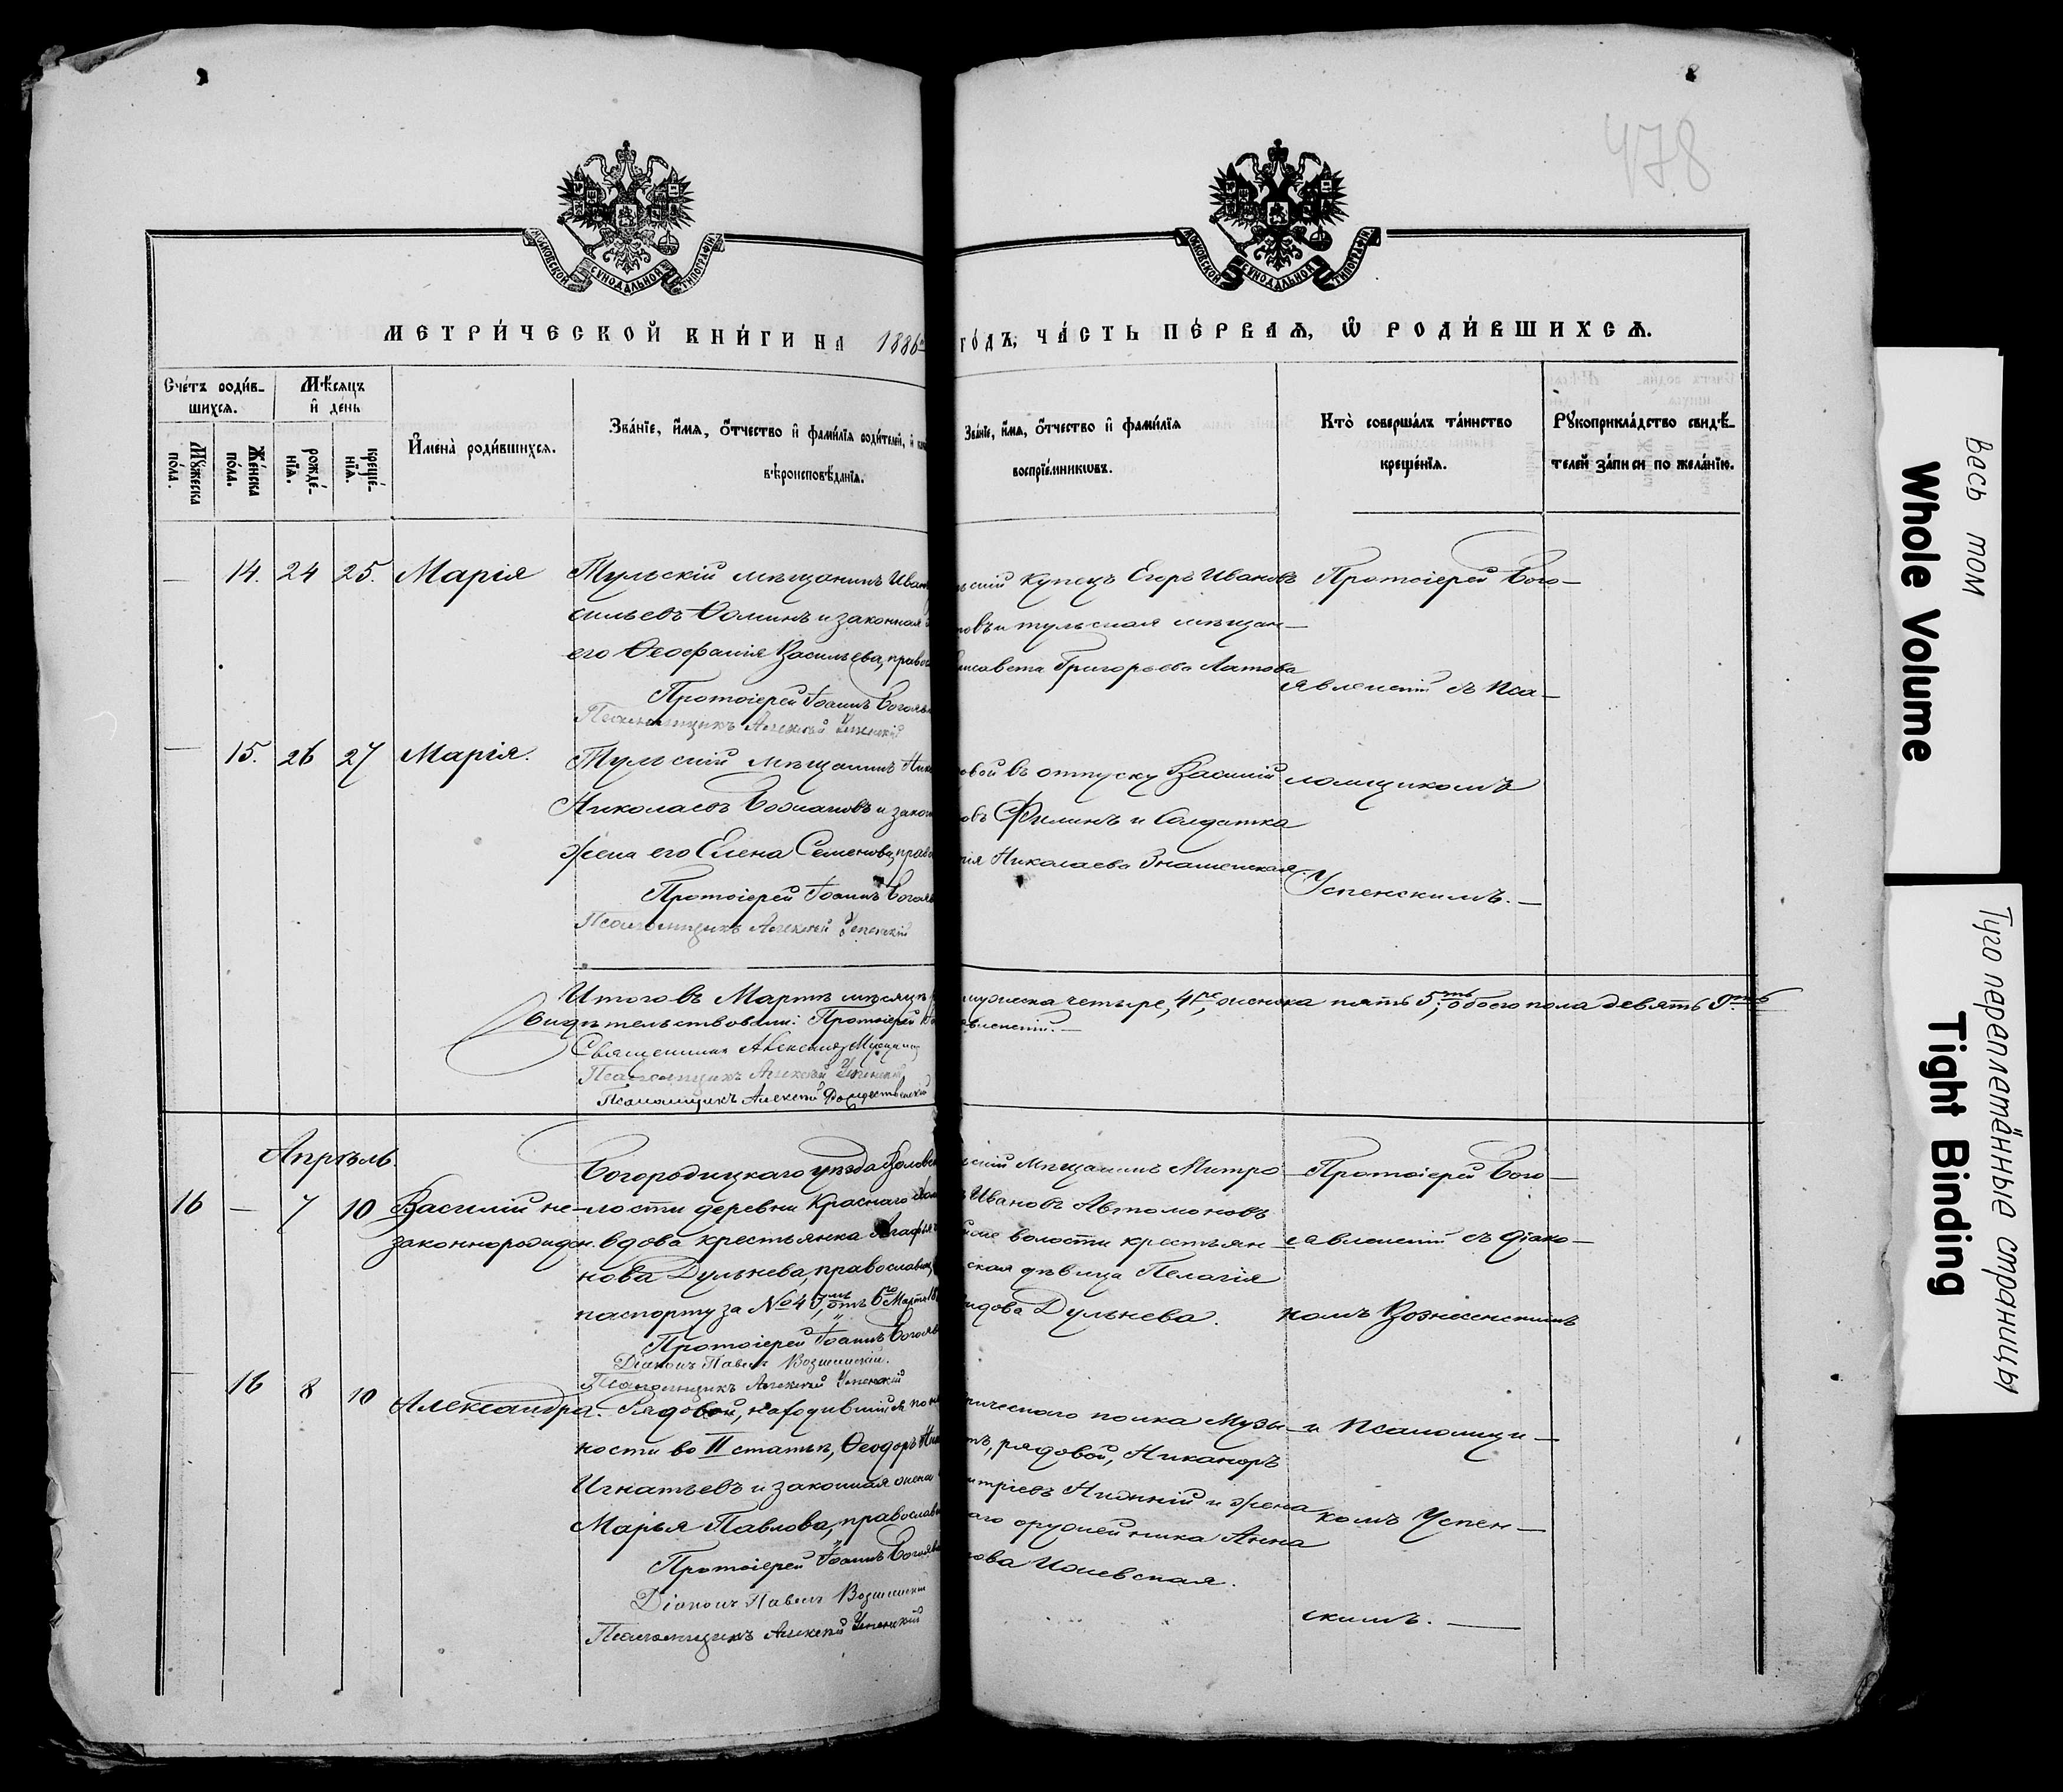 478
МОСКОВСКОЙ СУНОДАЛЬНОЙ ТИПОГРАФІИ
МОСКОВСКОЙ СУНОДАЛЬНОЙ ТИПОГРАФІИ
МЕТРИ́ЧЕСКОЙ КНИ́ГИ НА 1886
ГО́ДЪ, ЧА́СТЬ ПЕ́РВАѦ, Ѡ РОДИ́ВШИХСѦ.
Сче́тъ роди́в-
шихсѧ.
Мѣ́сѧцъ
и де́нь
Мꙋ́жеска
по́ла.
Же́нска
по́ла.
рожде́-
нїѧ.
креще́-
нїѧ.
И҆мена̀ роди́вшихсѧ.
Зва́нїе, и҆́мѧ, ѻ҆́тчество и҆ фами́лїѧ роди́телей, и҆
вѣроисповѣ́данїѧ.
Зва́нїе, и҆́мѧ, ѻ҆́тчество и҆ фами́лїѧ
воспрїе́мникѡвъ.
Кто̀ соверша́лъ та́инство
креще́нїѧ.
Рꙋкоприкла́дство свидѣ́-
телей за́писи по жела́нїю.
— 14. 24 25. Марія
Тульскій мѣщанинъ Иван
сильевъ Ѳоминъ и законная
его Ѳеофанія Васильева, право
Протоіерей Іоаннъ Богояв
Псаломщикъ Алексѣй Успенскій
скій купецъ Егоръ Ивановъ
новъ и тульская мѣщан—
лисавета Григорьева
Протоіерей Бого—
явленскій съ Пса—
— 15. 26 27 Марія.
Тульскій мѣщанинъ Ник
Николаевъ и закон
жена его Елена Семенова, право
Протоіерей Іоаннъ Богояв
Псаломщикъ Алексѣй Успенскій
овой въ отпуску Василій
овъ Филинъ и Солдатка
рія Николаева Знаменская
ломщикомъ
Успенскимъ. —
Итого въ Мартѣ мѣсяцѣ
мужеска четыре, 4ре, женска пять 5ть, обоего пола девять 9ть
Свидѣтельствовали: Протоіерей
явленскій. —
Священникъ Александръ
Псаломщикъ Алексѣй Успенскій
Псаломщикъ Алексѣй Рождественскій
Апрѣль.
16 — 7 10 Василій не-
законнорожден.
Богородицкаго уѣзда
лости деревни Краснаго
вдова крестьянка Агафья
нова Дульнева, православн
паспорту за №
Протоіерей Іоаннъ Богояв
Діаконъ Павелъ Вознесенскій.
Псаломщикъ Алексѣй Успенскій
скій Мѣщанинъ Митро
Ивановъ Автомоновъ
же волости крестьян—
ская дѣвица Пелагія
Дульнева.
Протоіерей Бого—
явленскій съ Діако—
номъ Вознесенскимъ
— 16 8 10 Александра.
Рядовой, находившійся по
ности во II статьѣ, Ѳеодоръ
Игнатьевъ и законная жена
Марья Павлова, православн
Протоіерей Іоаннъ Богояв
Діаконъ Павелъ Вознесенскій
Псаломщикъ Алексѣй Успенскій
рическаго полка Музы—
тъ, рядовой, Никаноръ
итріевъ Нижній и жена
аго оружейника Анна
нова
и Псаломщи—
комъ Успен—
скимъ. —
весь том
Whole Volume
Туго переплетённые страницы
Tight Binding